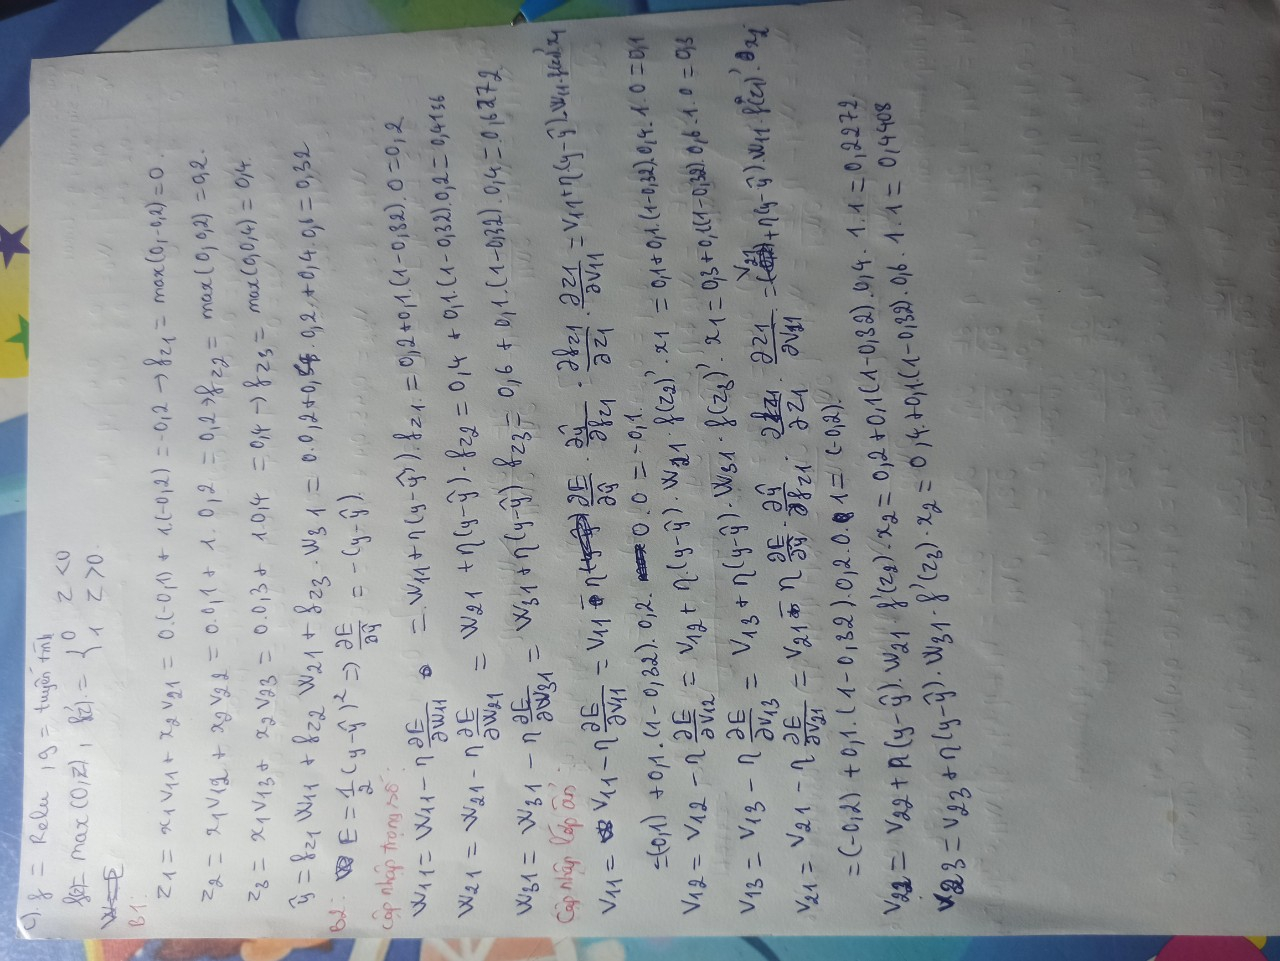 c). f = Relu, g = tuyến tính
f(z) = max(0,z), f'(z) = { 0 z<0
1 z>0.
B1:
z1 = x1 v11 + x2 v21 = 0.(-0,1) + 1.(-0,2) = -0,2 → fz1 = max(0,-0,2) = 0.
z2 = x1 v12 + x2 v22 = 0.0,1 + 1.0,2 = 0,2 → fz2 = max(0,0,2) = 0,2.
z3 = x1 v13 + x2 v23 = 0.0,3 + 1.0,4 = 0,4 → fz3 = max(0,0,4) = 0,4
ŷ = fz1 w11 + fz2 w21 + fz3 . w31 = 0.0,2 + 0,4 . 0,2 + 0,4.0,6 = 0,32
B2: E = 1/2 (y-ŷ)² => ∂E/∂ŷ = -(y-ŷ).
Cập nhập trọng số:
w11 = w11 - η ∂E/∂w11 = w11 + η(y-ŷ).fz1 = 0,2 + 0,1.(1-0,32).0 = 0,2
w21 = w21 - η ∂E/∂w21 = w21 + η(y-ŷ).fz2 = 0,4 + 0,1.(1-0,32).0,2 = 0,4136
w31 = w31 - η ∂E/∂w31 = w31 + η(y-ŷ) fz3 = 0,6 + 0,1.(1-0,32).0,4 = 0,6272
Cập nhập lớp ẩn:
v11 = v11 - η ∂E/∂v11 = v11 - η ∂E/∂ŷ . ∂ŷ/∂fz1 . ∂fz1/∂z1 . ∂z1/∂v11 = v11 + η(y-ŷ).w11.f(z1)'.x1
= (-0,1) + 0,1.(1-0,32).0,2. 0.0 = -0,1.
v12 = v12 - η ∂E/∂v12 = v12 + η.(y-ŷ).w21.f(z2)'.x1 = 0,1 + 0,1.(1-0,32).0,4.1.0 = 0,1
v13 = v13 - η ∂E/∂v13 = v13 + η(y-ŷ).w31.f(z3)'.x1 = 0,3 + 0,1(1-0,32).0,6.1.0 = 0,3
v21 = v21 - η ∂E/∂v21 = v21 - η ∂E/∂ŷ . ∂ŷ/∂fz1 . ∂fz1/∂z1 . ∂z1/∂v21 = v21 + η(y-ŷ).w11.f(z1)'.x2
= (-0,2) + 0,1.(1-0,32).0,2.0.1 = (-0,2).
v22 = v22 + η(y-ŷ).w21.f'(z2).x2 = 0,2 + 0,1(1-0,32).0,4.1.1 = 0,2272
v23 = v23 + η(y-ŷ).w31.f'(z3).x2 = 0,4 + 0,1(1-0,32).0,6.1.1 = 0,4408